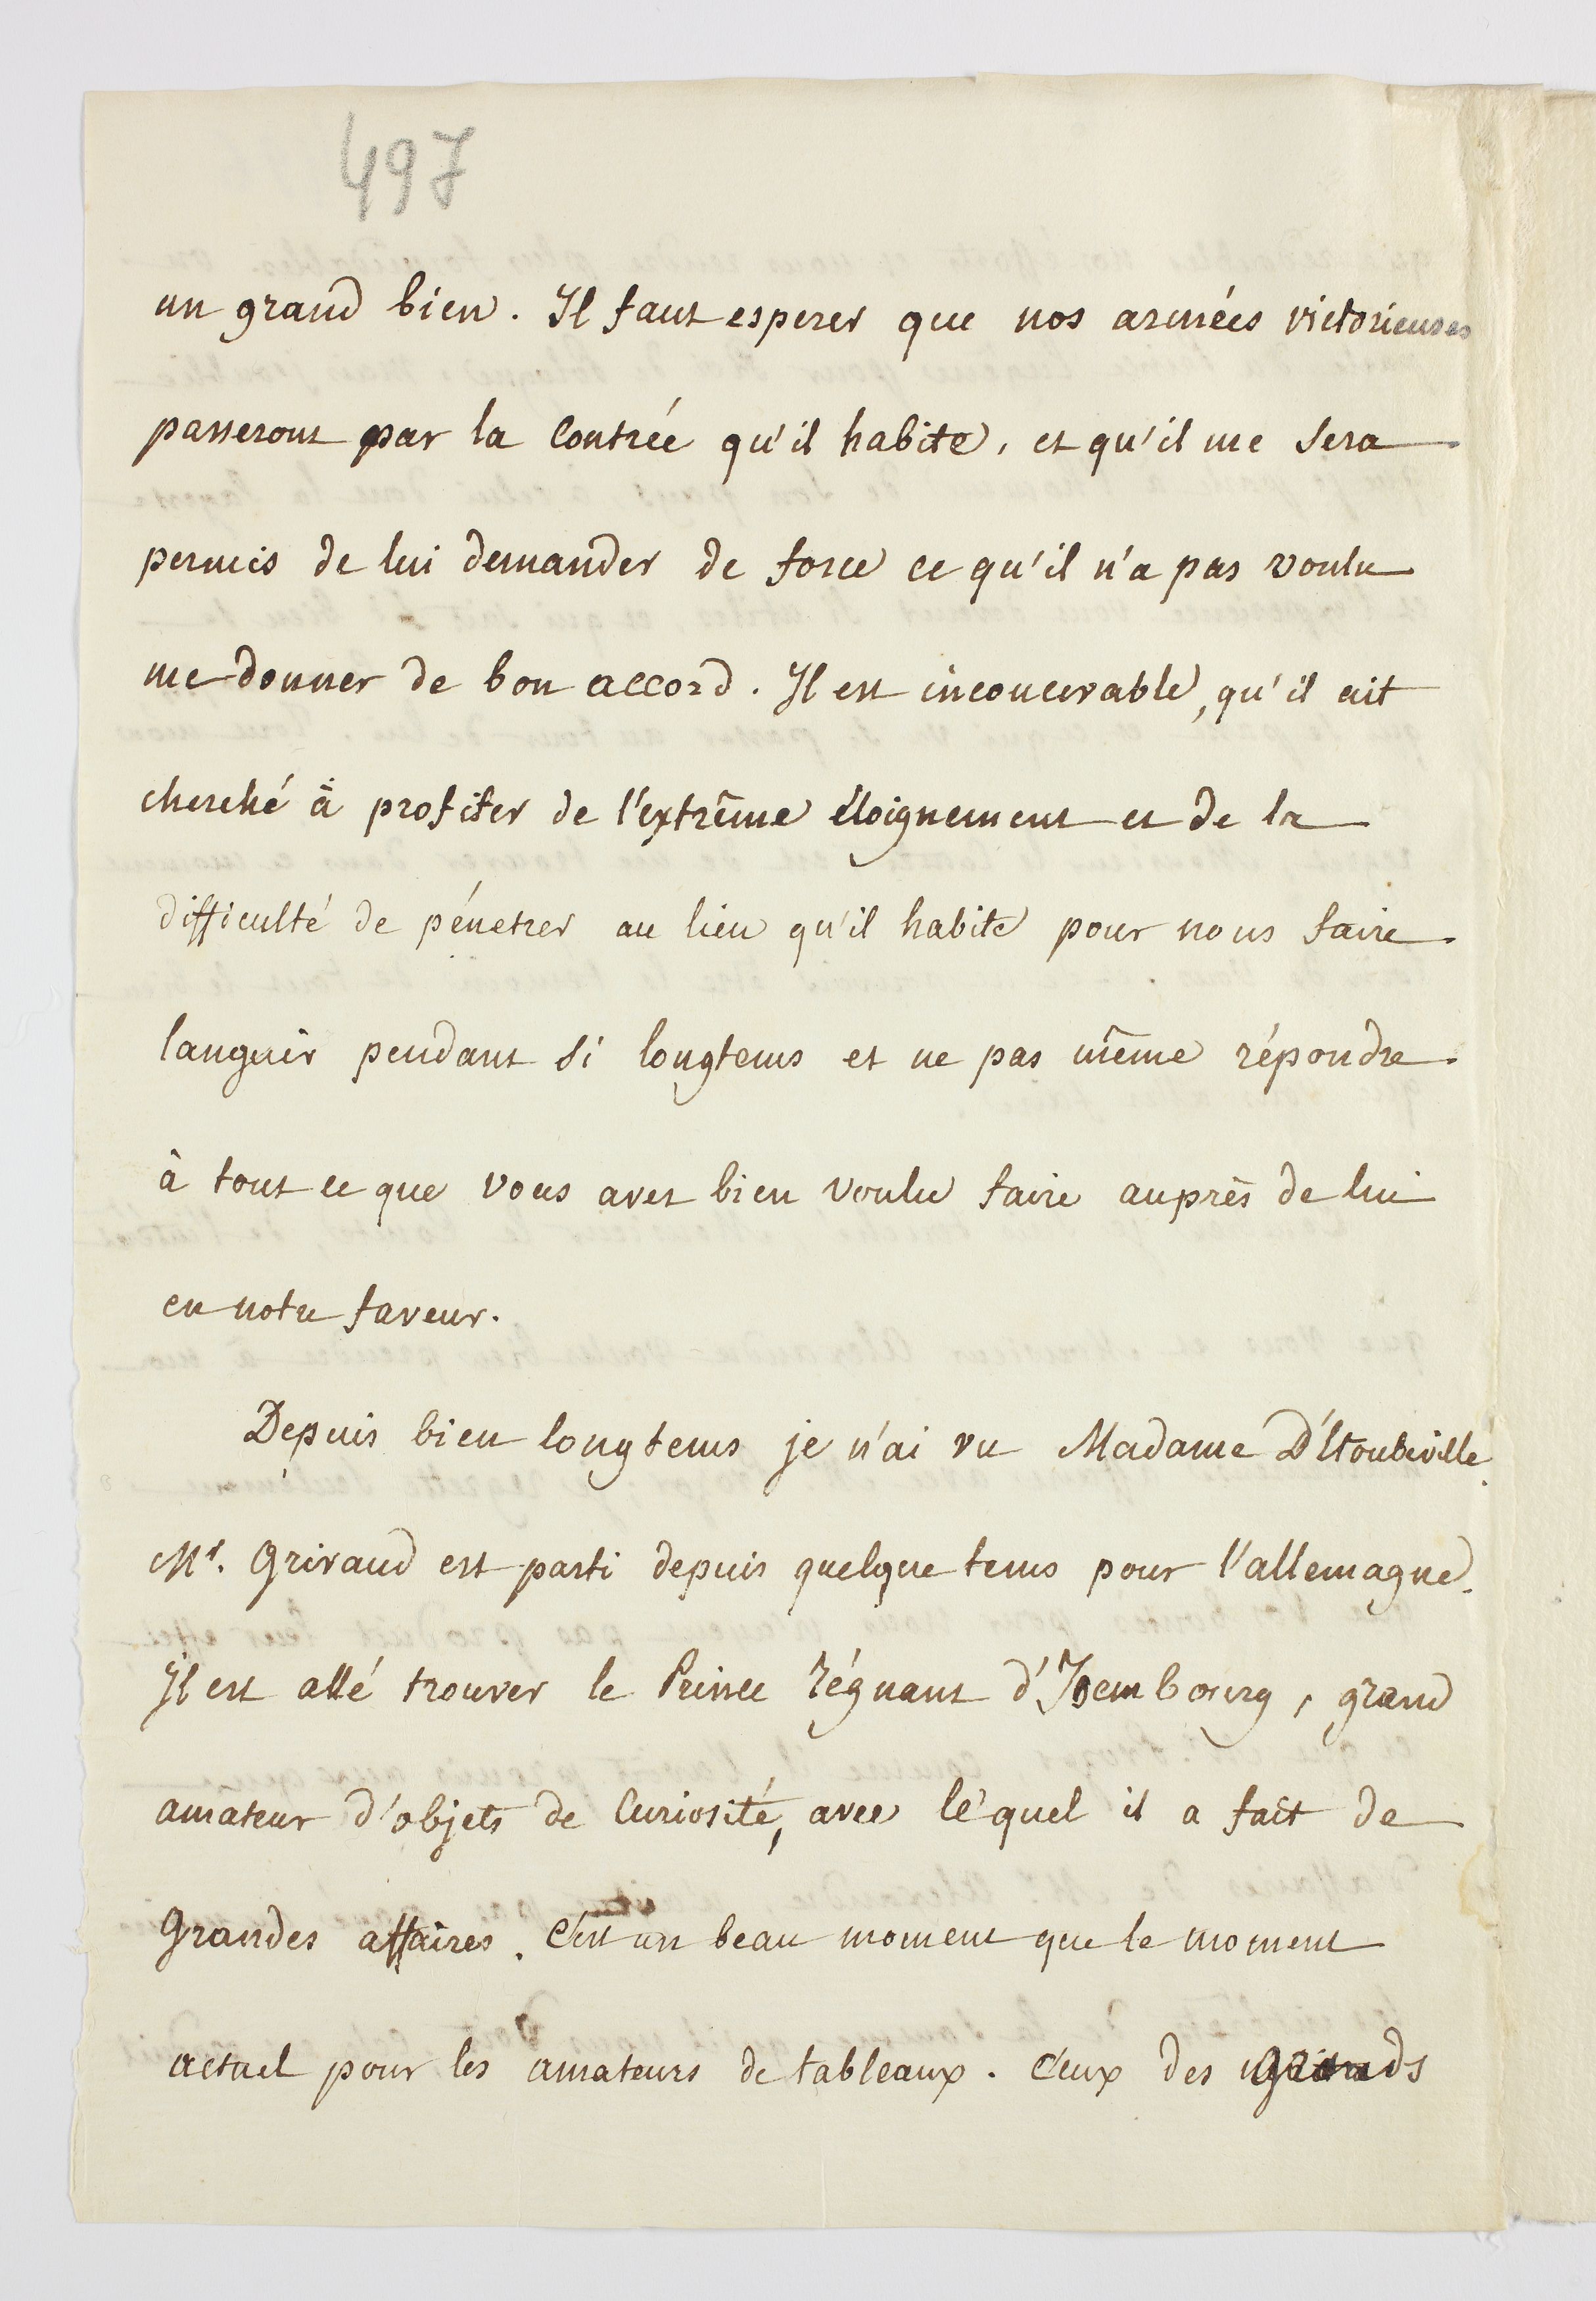 497
un grand bien. Il faut esperer que nos armées victorieuses
passeront par la Contrée qu'il habite, et qu'il me sera
permis de lui demander de force ce qu'il n'a pas voulu
me donner de bon accord. Il est inconcevable, qu'il ait
cherché à profiter de l'extrême éloignement et de la
difficulté de pénetrer au lieu qu'il habite pour nous faire
languir pendant si longtems et ne pas même répondre
à tout ce que vous avez bien voulu faire auprès de lui
en notre faveur.
Depuis bien longtems je n'ai vu Madame D'Etoubeville.
Mr. Grivaud est parti depuis quelque tems pour l'allemagne.
Il est allé trouver le Prince régnant d'Isembourg, grand
amateur d'objets de Curiosité, avec lequel il a fait de
Grandes affaires. C'est un beau moment que le moment
actuel pour les amateurs de tableaux. Ceux des grands